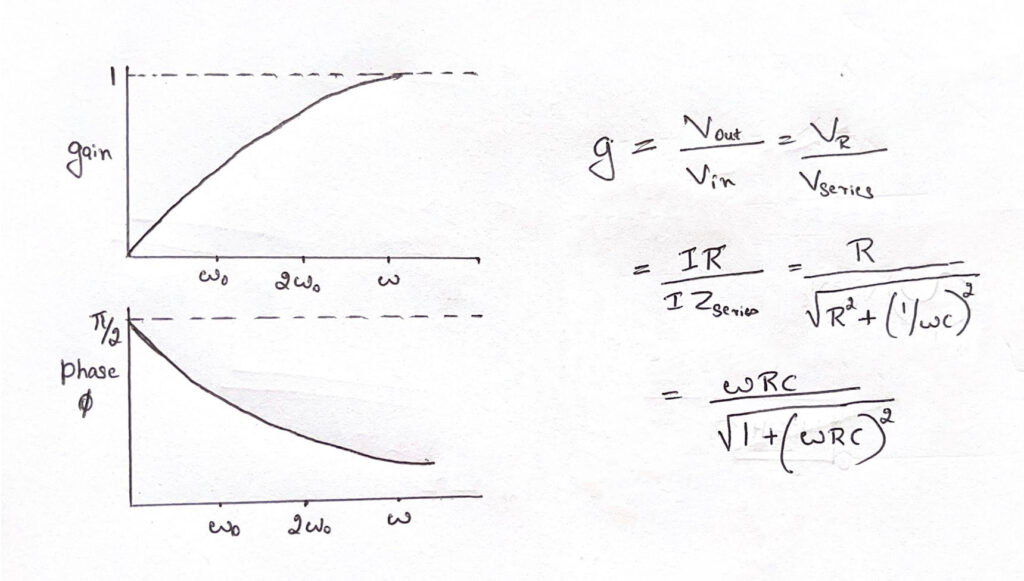 1
gain
ω₀ 2ω₀ ω
π/2
phase
ϕ
ω₀ 2ω₀ ω
g = Vout/Vin = VR/Vseries
= IR/IZseries = R/√R²+(1/ωC)²
= ωRC/√1+(ωRC)²